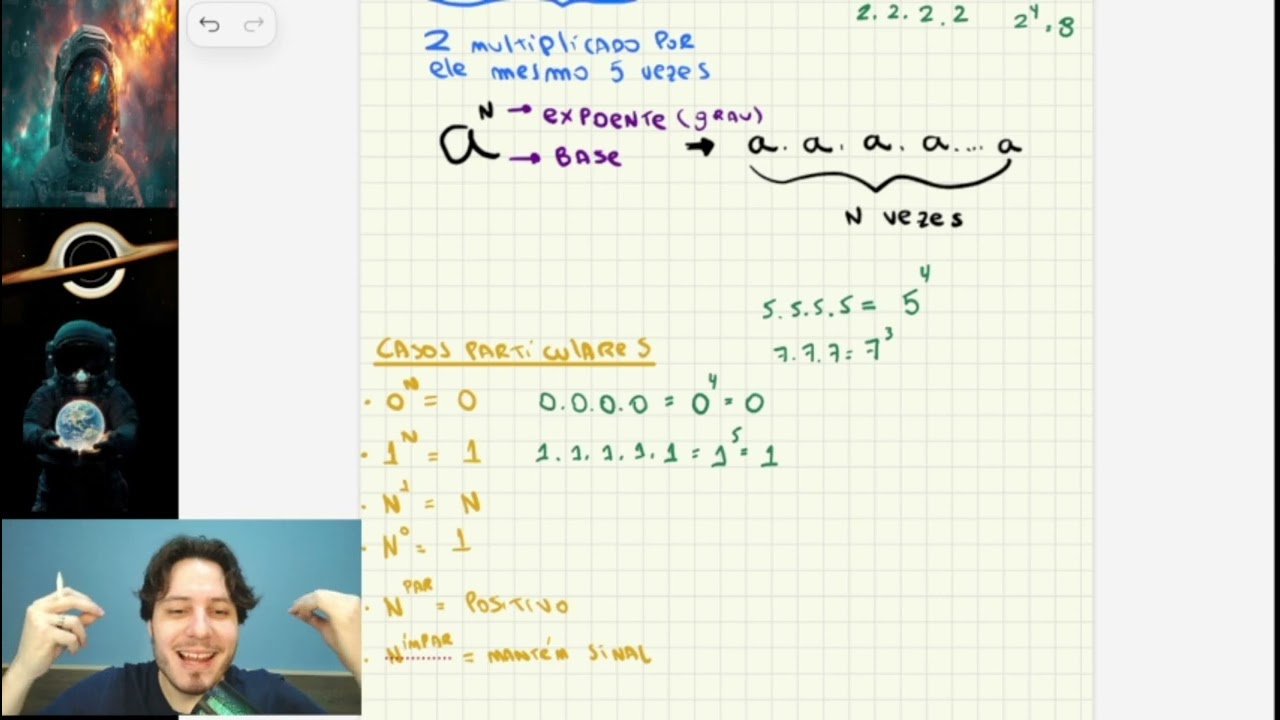 2.2.2.2 2⁴.8
2 multiplicado por
ele mesmo 5 vezes
aᴺ → expoente (grau)
→ Base ➔ a.a.a.a...a
N vezes
5.5.5.5 = 5⁴
7.7.7 = 7³
Casos particulares
· 0ᴺ = 0 0.0.0.0 = 0⁴ = 0
· 1ᴺ = 1 1.1.1.1.1 = 1⁵ = 1
· N¹ = N
· N⁰ = 1
· N^PAR = Positivo
· N^ímpar = mantém sinal